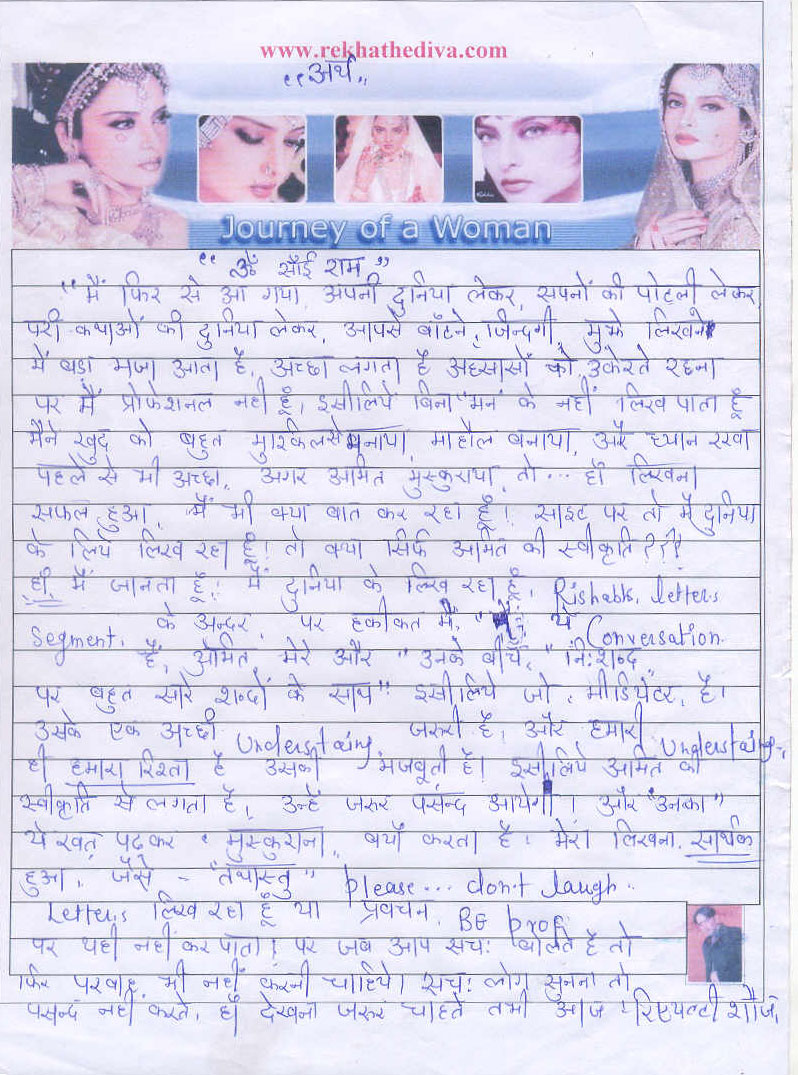 www.rekhathediva.com
"अर्थ"
Journey of a Woman
"ॐ साँई राम"
"मैं फिर से आ गया, अपनी दुनिया लेकर, सपनों की पोटली लेकर,
परी-कथाओं की दुनिया लेकर, आपसे बाँटने, जिन्दगी, मुझे लिखने
में बडा मजा आता है, अच्छा लगता है अहसासों को उकेरते रहना
पर मैं प्रोफेशनल नहीं हूँ, इसीलिये बिना "मन" के नहीं लिख पाता हूँ
मैने खुद को बहुत मुश्किलसे बनाया, माहौल बनाया, और ध्यान रखा
पहले से भी अच्छा, अगर अमित मुस्कुराया, तो... हाँ लिखना
सफल हुआ, मैं भी क्या बात कर रहा हूँ! साइट पर तो मैं दुनिया
के लिये लिख रहा हूँ! तो क्या सिर्फ अमित की स्वीकृति???
हाँ, मैं जानता हूँ! मैं दुनिया के लिख रहा हूँ, Rishabhs letters
segment. के अन्दर, पर हकीकत में, ये Conversation
है, अमित, मेरे और "उनके बीच," "नि:शब्द,,
पर बहुत सारे शब्दों के साथ" इसीलिये जो, मीडियेटर, है।
उसके एक अच्छी Understaing जरुरी है, और हमारी Understaing
ही हमारा रिश्ता है उसकी मजबूती है! इसीलिये अमित की
स्वीकृति से लगता है, उन्हें जरुर पसन्द आयेगी। और "उनका"
ये खत, पढकर, मुस्कुराना,, बयाँ करता है! मेरा लिखना, सार्थक
हुआ, जैसे - "तथास्तु" please... don't laugh..
Letters लिख रहा हूँ या प्रवचन, Be prof
पर यही नहीं कर पाता! पर जब आप सच: बोलते है तो
फिर परवाह, भी नहीं करनी चाहिये। सच: लोग सुनना तो
पसन्द नहीं करते, हाँ देखना जरुर चाहते तभी आज रिएयल्टी शौज,